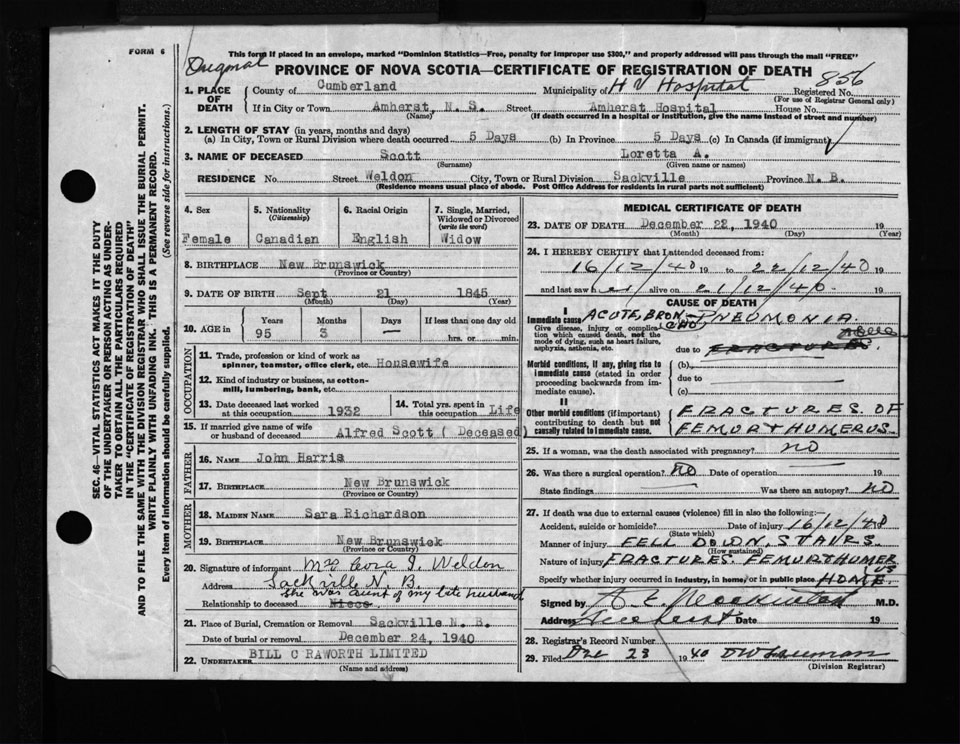 FORM 6
This form if placed in an envelope, marked "Dominion Statistics—Free, penalty for improper use $300," and properly addressed will pass through the mail "FREE"
Original
PROVINCE OF NOVA SCOTIA—CERTIFICATE OF REGISTRATION OF DEATH
856
1. PLACE OF DEATH
County of Cumberland Municipality of H V Hospital Registered No.
(For use of Registrar General only)
If in City or Town Amherst, N. S. Street Amherst Hospital House No.
(Name) (If death occurred in a hospital or institution, give the name instead of street and number)
2. LENGTH OF STAY (in years, months and days)
(a) In City, Town or Rural Division where death occurred 5 Days (b) In Province 5 Days (c) In Canada (if immigrant)
3. NAME OF DECEASED Scott Loretta A.
(Surname) (Given name or names)
RESIDENCE No. Street Weldon City, Town or Rural Division Sackville Province N. B.
(Residence means usual place of abode. Post Office Address for residents in rural parts not sufficient)
4. Sex Female
5. Nationality (Citizenship) Canadian
6. Racial Origin English
7. Single, Married, Widowed or Divorced (write the word) Widow
8. BIRTHPLACE New Brunswick
(Province or Country)
9. DATE OF BIRTH Sept 21 1845
(Month) (Day) (Year)
10. AGE in Years Months Days If less than one day old
95 3 — hrs. or min.
OCCUPATION
11. Trade, profession or kind of work as spinner, teamster, office clerk, etc. Housewife
12. Kind of industry or business, as cotton-mill, lumbering, bank, etc.
13. Date deceased last worked at this occupation 1932
14. Total yrs. spent in this occupation Life
15. If married give name of wife or husband of deceased Alfred Scott ( Deceased)
FATHER
16. NAME John Harris
17. BIRTHPLACE New Brunswick
(Province or Country)
MOTHER
18. MAIDEN NAME Sara Richardson
19. BIRTHPLACE New Brunswick
(Province or Country)
20. Signature of informant Mrs Cora I. Weldon
Address Sackville N. B.
She was aunt of my late husband
Relationship to deceased Niece
21. Place of Burial, Cremation or Removal Sackville N. B.
Date of burial or removal December 24, 1940
22. UNDERTAKER BILL C RAWORTH LIMITED
(Name and address)
MEDICAL CERTIFICATE OF DEATH
23. DATE OF DEATH December 22, 1940 19
(Month) (Day) (Year)
24. I HEREBY CERTIFY that I attended deceased from:
16/12/40 19 to 22/12/40 19
and last saw h er alive on 21/12/40. 19
CAUSE OF DEATH
I
Immediate cause ACUTE, BRON- PNEUMONIA.
(CHO)
Give disease, injury or complication which caused death, not the mode of dying, such as heart failure, asphyxia, asthenia, etc.
due to FRACTURES.
Morbid conditions, if any, giving rise to immediate cause (stated in order proceeding backwards from immediate cause).
(b)
due to
(c)
II
Other morbid conditions (if important) contributing to death but not causally related to immediate cause.
FRACTURES. OF
FEMUR & HUMERUS.
25. If a woman, was the death associated with pregnancy? no
26. Was there a surgical operation? No Date of operation 19
State findings Was there an autopsy? NO
27. If death was due to external causes (violence) fill in also the following:—
Accident, suicide or homicide? Date of injury 16/12/40
(State which)
Manner of injury FELL DOWN, STAIRS.
(How sustained)
Nature of injury FRACTURES. FEMUR & HUMERUS
Specify whether injury occurred in industry, in home, or in public place HOME.
Signed by M.D.
Address Amherst Date 19
28. Registrar's Record Number
29. Filed Dec 23 1940
(Division Registrar)
SEC. 46—VITAL STATISTICS ACT MAKES IT THE DUTY
OF THE UNDERTAKER OR PERSON ACTING AS UNDER-
TAKER TO OBTAIN ALL THE PARTICULARS REQUIRED
IN THE "CERTIFICATE OF REGISTRATION OF DEATH"
AND TO FILE THE SAME WITH THE DIVISION REGISTRAR WHO SHALL ISSUE THE BURIAL PERMIT.
WRITE PLAINLY WITH UNFADING INK. THIS IS A PERMANENT RECORD.
Every item of information should be carefully supplied. (See reverse side for instructions.)